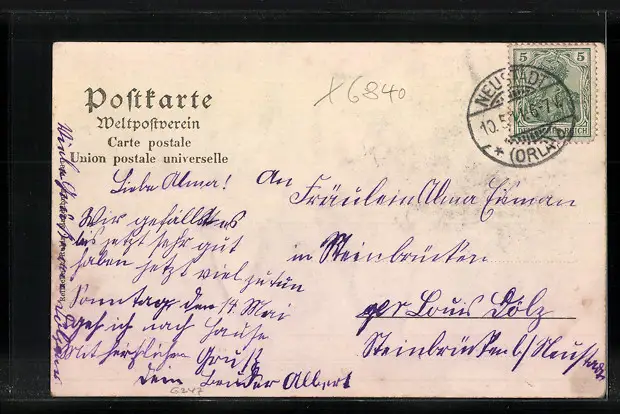 Postkarte
Weltpostverein
Carte postale
Union postale universelle
X6840
5 5
NEUSTADT
10.5. 6-7
DEUTSCHES REICH
* (ORLA)
Liebe Alma!
Wir gefällt es
bis jetzt sehr gut
haben jetzt viel zu tun
Sonntag den 14. Mai
geh ich nach Hause
Mit herzlichen Gruß
Dein Bruder Albert
An
Fräulein Alma
in Steinbrücken
Louis Dölz
Steinbrücken b/Neustadt
6247